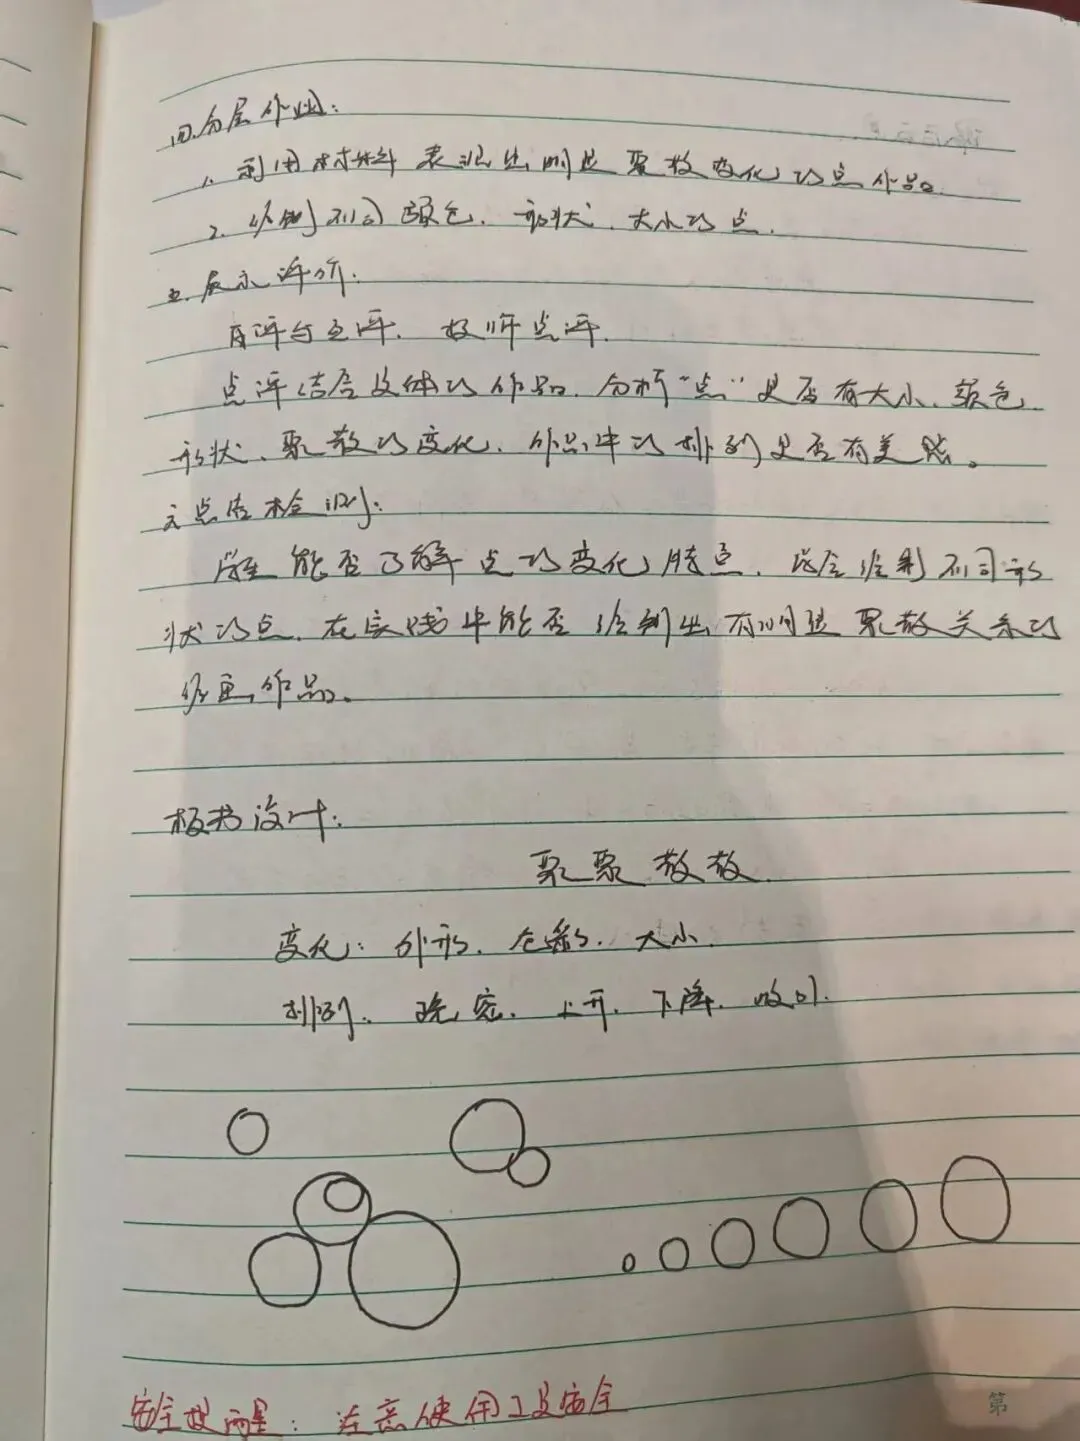 四.分层作业:
1. 利用材料表现出明显聚散变化的点作品.
2. 绘制不同颜色.形状.大小的点.
五.展示评价:
自评与互评.教师点评.
点评结合具体的作品.分析“点”是否有大小、颜色
形状、聚散的变化.作品中的排列是否有美感。
六点结检测:
学生能否了解点的变化特点.能否绘制不同形
状的点.在实践中能否绘制出有明显聚散关系的
绘画作品。
板书设计:
聚聚散散.
变化: 外形.色彩.大小.
排列. 疏密.上升.下降.收回.
安全提醒: 注意使用工具安全
第